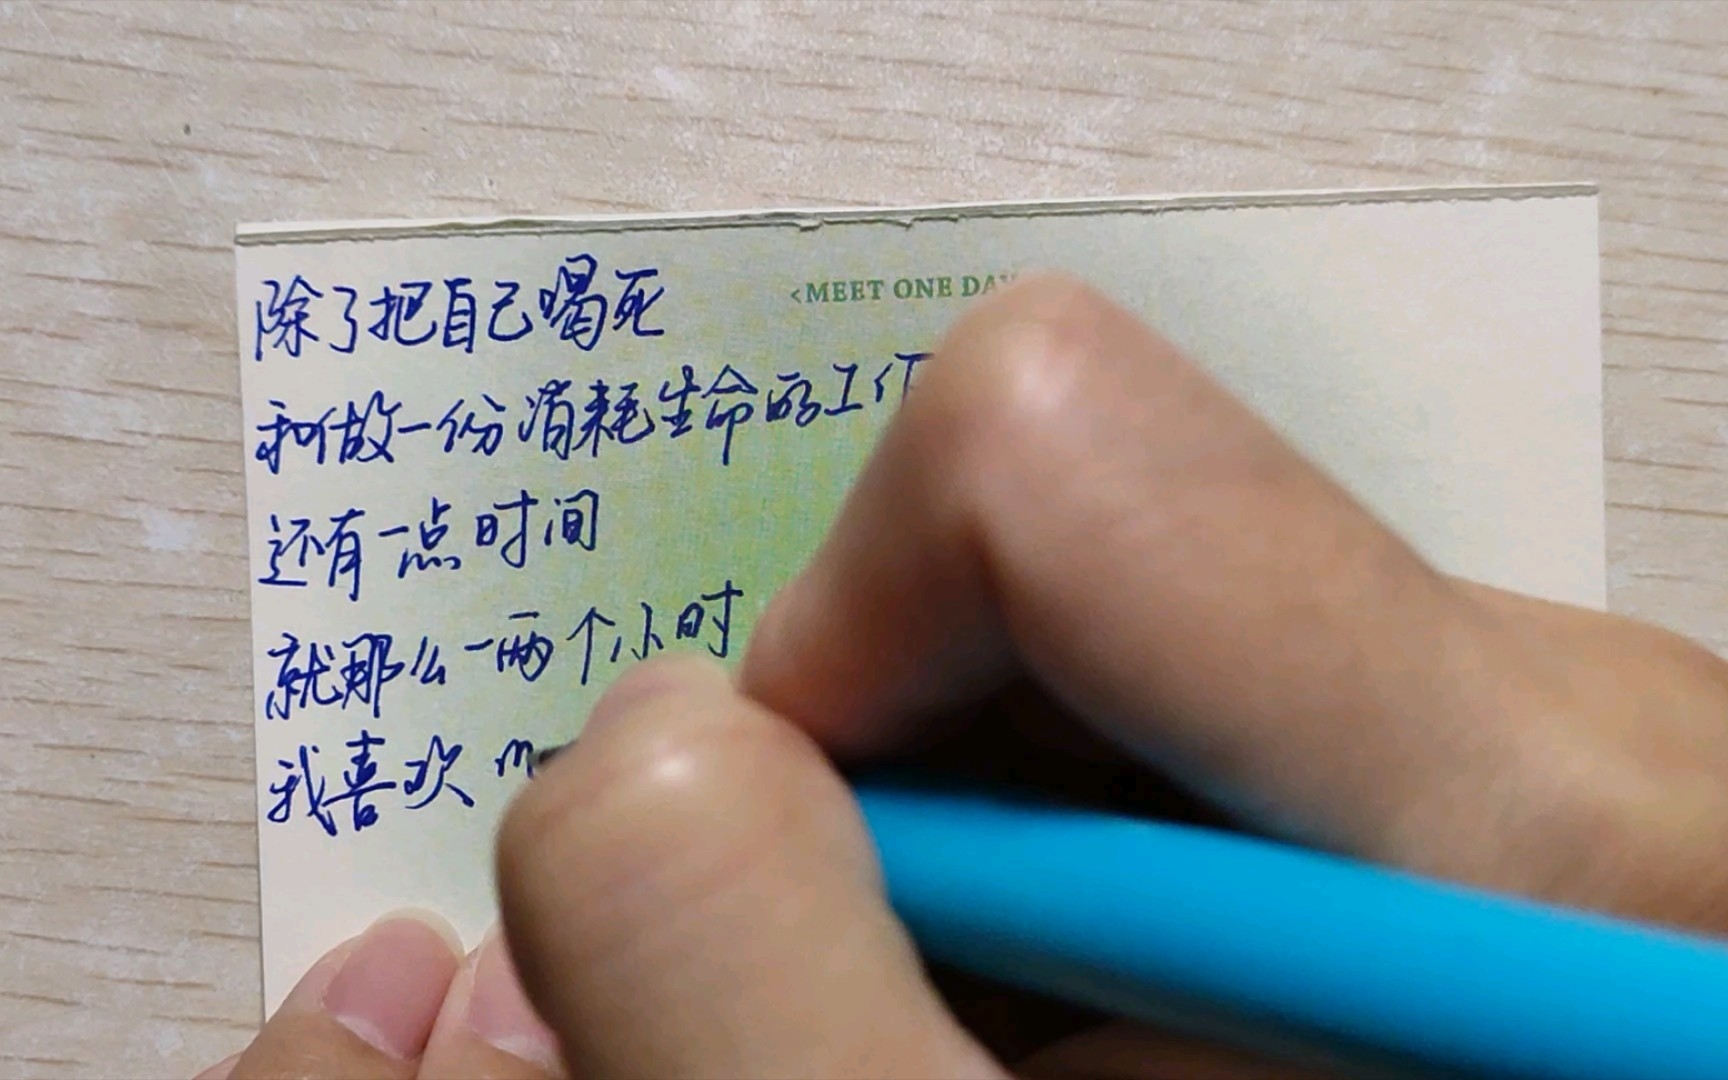 <MEET ONE DAY
除了把自己喝死
和做一份消耗生命的工作
还有一点时间
就那么一两个小时
我喜欢